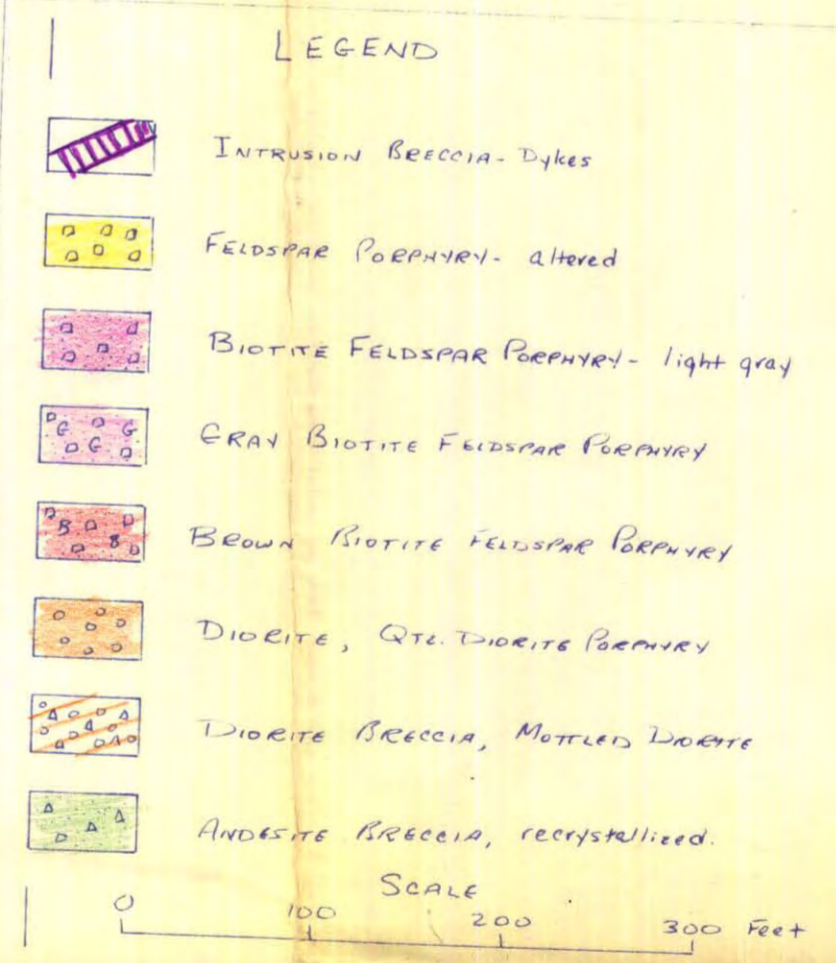 LEGEND
INTRUSION BRECCIA - Dykes
FELDSPAR PORPHYRY - altered
BIOTITE FELDSPAR PORPHYRY - light gray
G G G
GRAY BIOTITE FELDSPAR PORPHYRY
B B
BROWN BIOTITE FELDSPAR PORPHYRY
DIORITE, QTZ. DIORITE PORPHYRY
DIORITE BRECCIA, MOTTLED DIORITE
ANDESITE BRECCIA, recrystallized.
SCALE
0 100 200 300 Feet